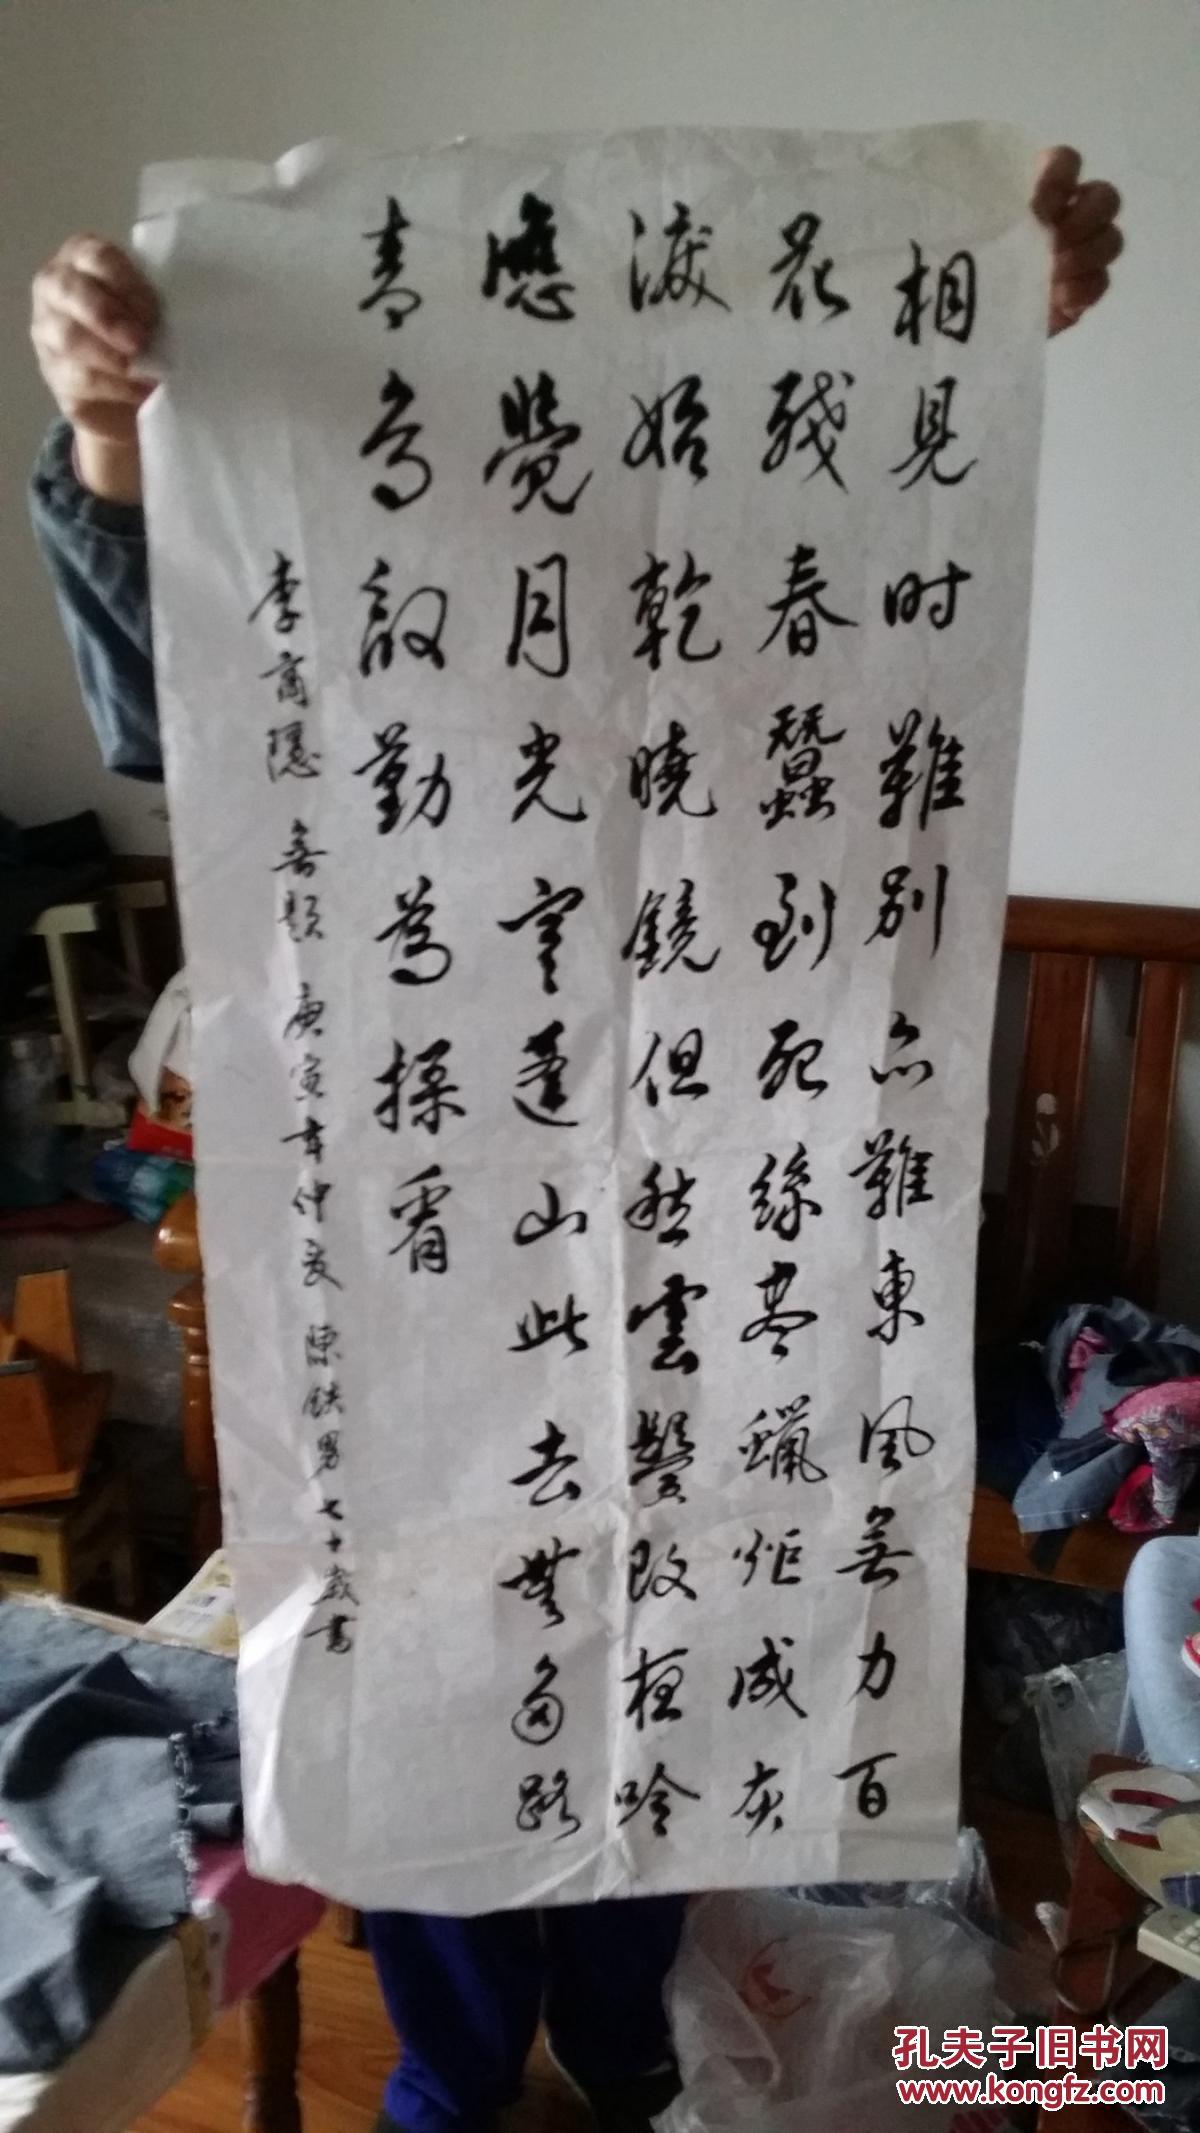 相見时難别亦難東風無力百
花残春蠶到死絲尽蠟炬成灰
淚始乾曉鏡但愁雲鬢改夜吟
應覺月光寒蓬山此去無多路
青鳥殷勤為探看
李商隱 無題 庚寅年仲夏 陳鉄男七十歲書
孔夫子旧书网
www.kongfz.com